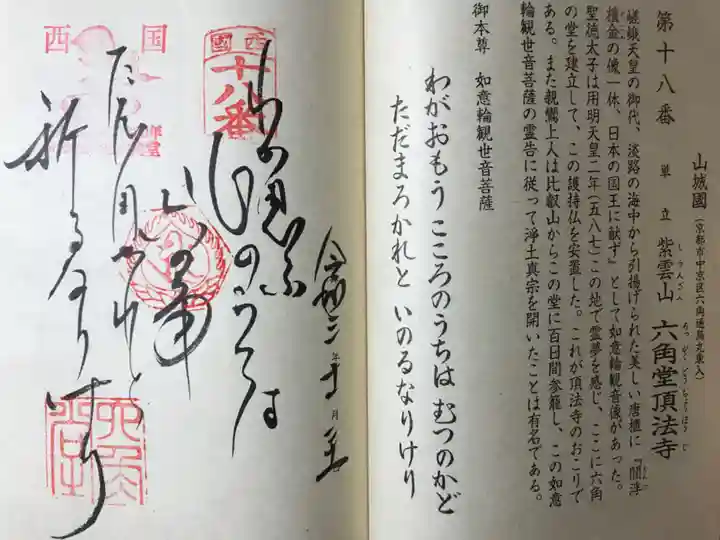 山城國(京都市中京区六角通烏丸東入)
第十八番 単立 紫雲山 六角堂頂法寺
しうんざん ろっかくどうちょうほうじ
嵯峨天皇の御代、淡路の海中から引揚げられた美しい唐櫃に『閻浮
檀金の像一体、日本の国王に献ず』として如意輪観音像があった。
聖徳太子は用明天皇二年(五八七)この地で霊夢を感じ、ここに六角
の堂を建立して、この護持仏を安置した。これが頂法寺のおこりで
ある。また親鸞上人は比叡山からこの堂に百日間参籠し、この如意
輪観世音菩薩の霊告に従って浄土真宗を開いたことは有名である。
御本尊 如意輪観世音菩薩
わがおもう こころのうちは むつのかど
ただまろかれと いのるなりけり
令和三年十月
わが思ふ
のうちは
六の角
祈るなりけり
西國
十八番
西国
六角堂